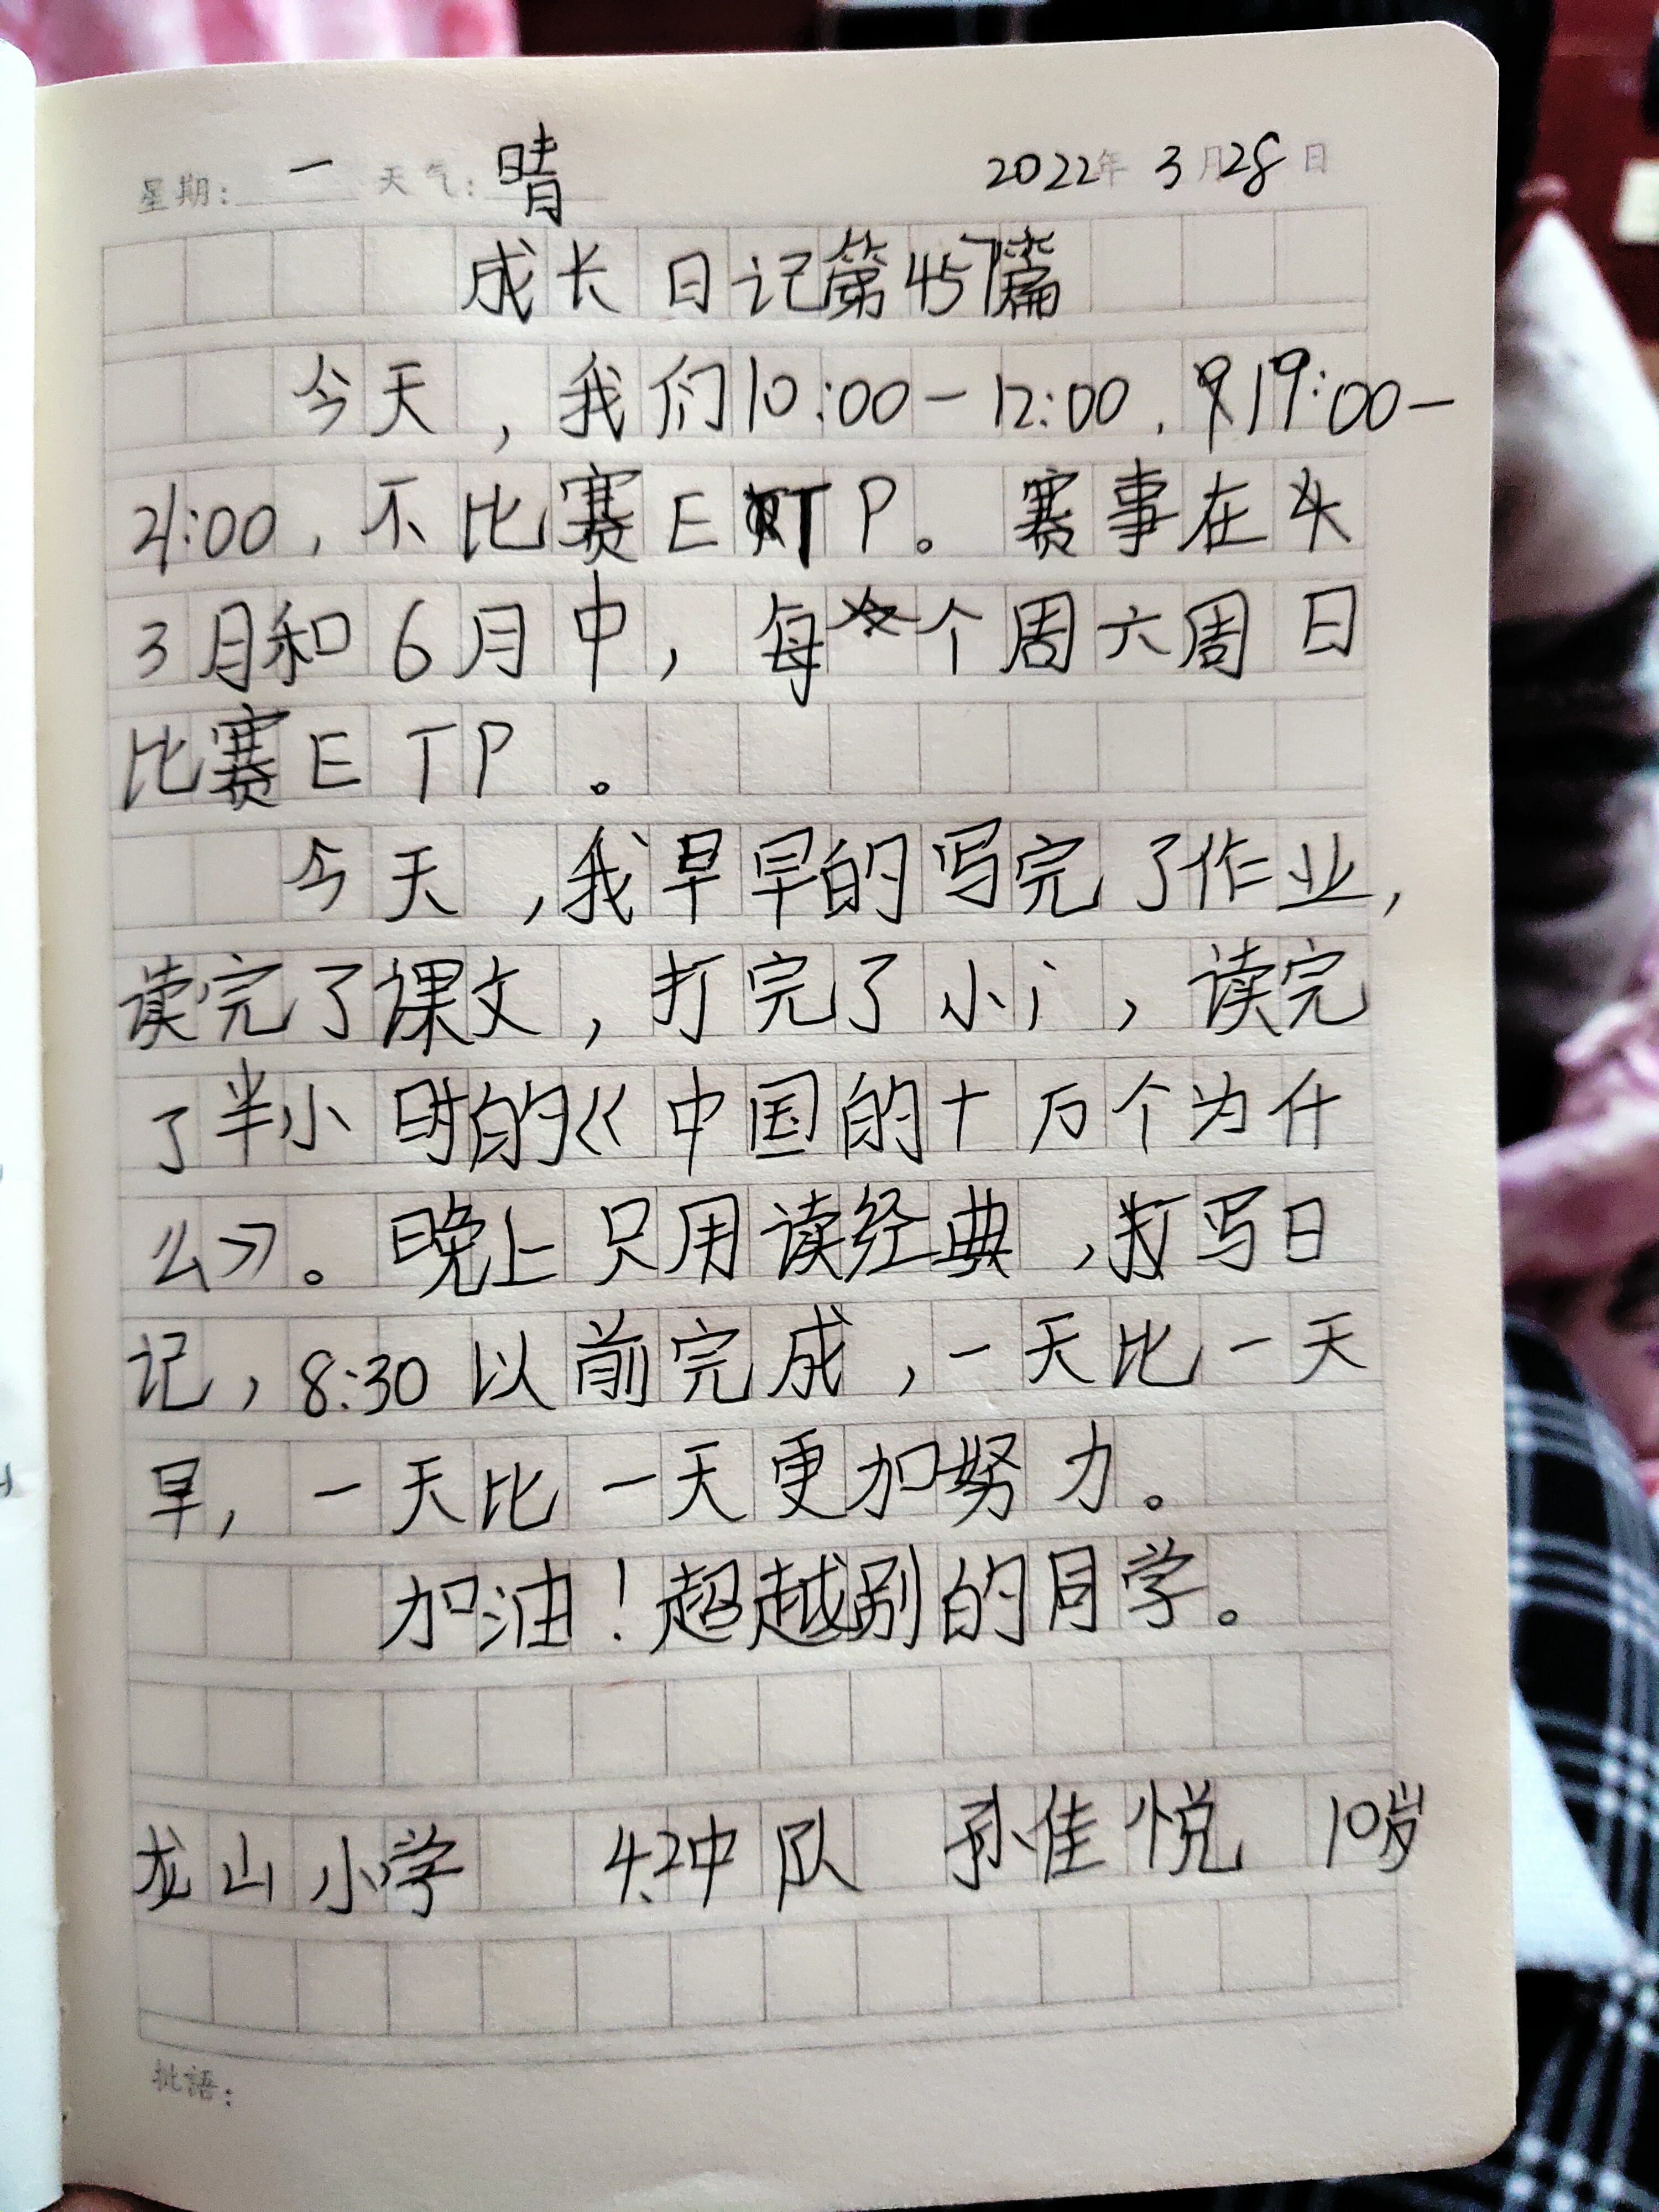 星期: 一 天气: 晴 2022年 3月28日
成长日记第457篇
今天，我们10:00-12:00，19:00-
21:00，不比赛ETP。赛事在头
3月和6月中，每个周六周日
比赛ETP。
今天，我早早的写完了作业，
读完了课文，打完了小i，读完
了半小时的《中国的十万个为什
么》。晚上只用读经典，写日
记，8:30以前完成，一天比一天
早，一天比一天更加努力。
加油！超越别的同学。
龙山小学 4.2中队 孙佳悦 10岁
批語: